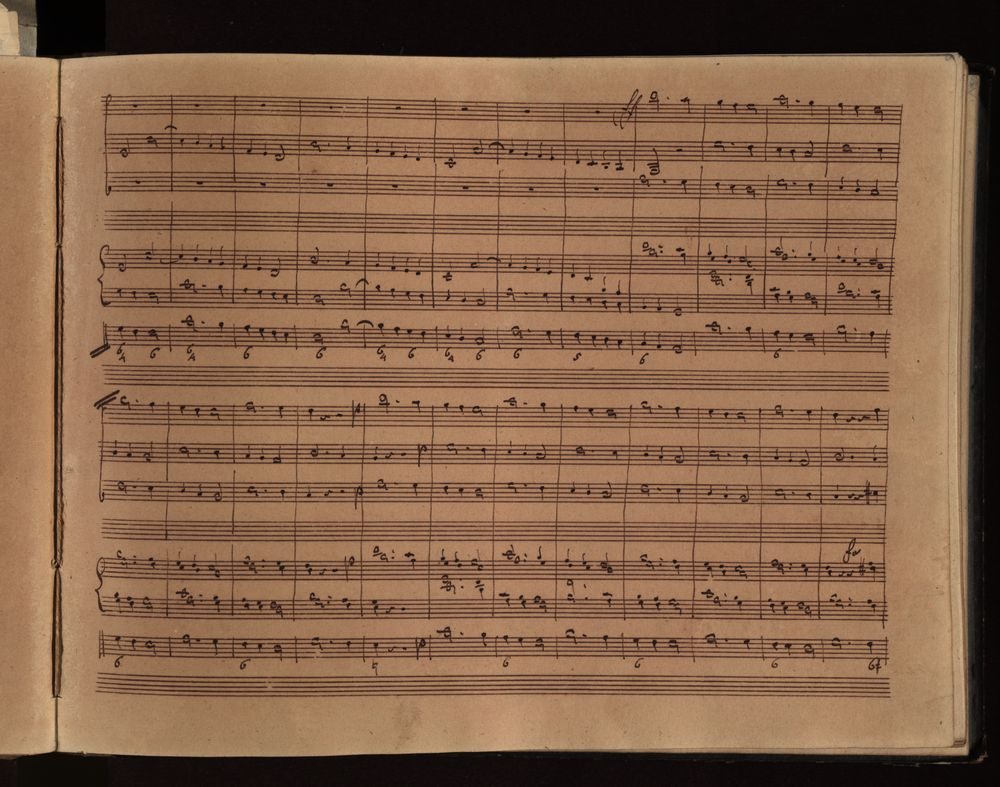 6 4 6 6 4 6 6 6 4 6 6 4 6 6 5 6 6
6 6 5 6 6 6